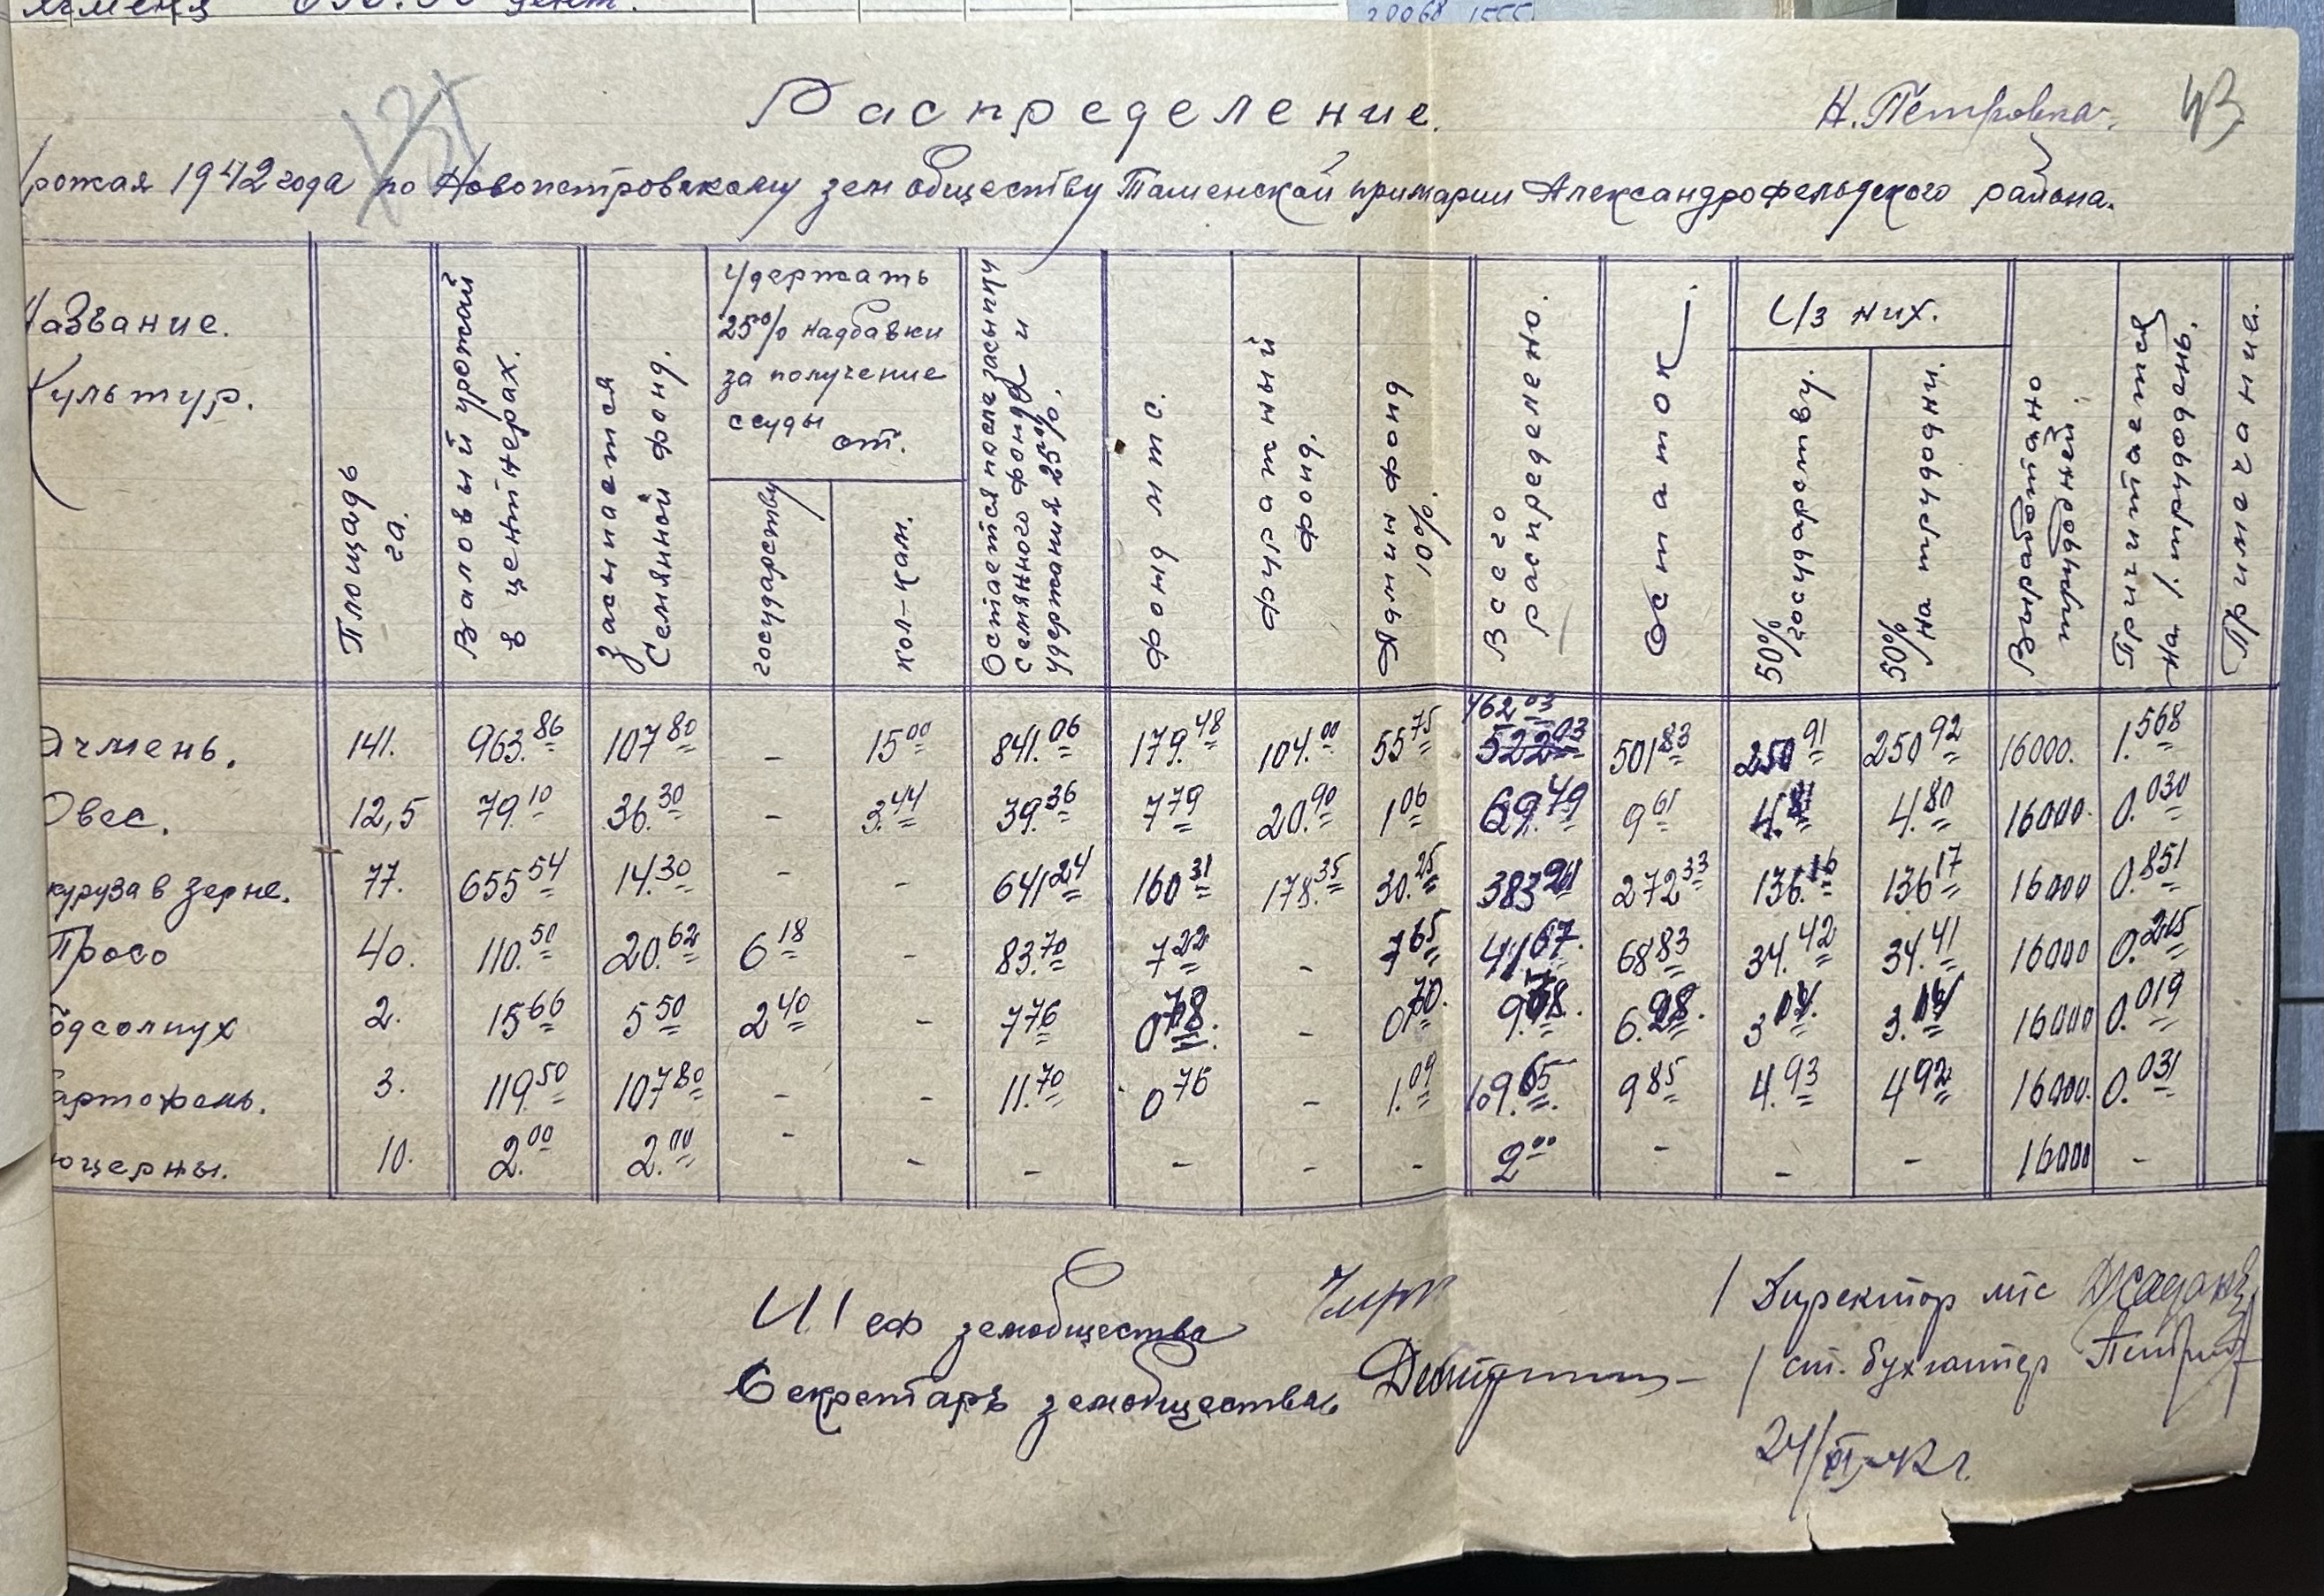 20068 1555
131
Распределение.
Н. Петровка.
43
Урожая 1942 года по Новопетровскому земобществу Таменской примарии Александрофельдского района.
Название Культур.
Площадь га.
Валовый урожай в центнерах.
Засыпается Семянной фонд.
Удержать 25% надбавки за получение ссуды от.
государству
кол-кам.
Остается после засыпки семянного фонда и удержания 25%.
Фонд мтс.
Фуражный фонд.
Админ фонд 10%.
Всего распределено.
Остаток.
Из них.
50% государству.
50% на трудодни.
Выработано трудодней.
Причитается на 1 трудодень.
Примечание.
Ячмень. 141. 963.86 107 80 - 15 00 841.06 179.48 104.00 55 75 462 03 522 03 501 83 250 91 250 92 16000. 1.568
Овес. 12,5 79.10 36.30 - 3.44 39.36 7 79 20.90 1 06 69.49 9 61 4.81 4.80 16000. 0.030
куруза в зерне. 77. 655 54 14.30 - - 641 24 160 31 178.35 30.25 383 21 272 33 136.16 136 17 16000 0.851
Просо 40. 110.50 20.62 6 18 - 83.70 7 22 - 7 65 41 67. 68 83 34.42 34.41 16000 0.215
одсолнух 2. 15 66 5 50 2 40 - 7 76 0 78. - 0 70. 6. 3 04. 3. 16000 0.019
артофель. 3. 119.50 107 80 - - 11.70 0 76 - 1.09 109.65 9 85 4.93 4 92 16000. 0.031
юцерны. 10. 2.00 2.00 - - - - - - 2 00 - - - 16000 -
Шеф земобщества
Секретарь земобщества
/ Директор мтс
/ ст. бухгалтер
24/XI-42 г.